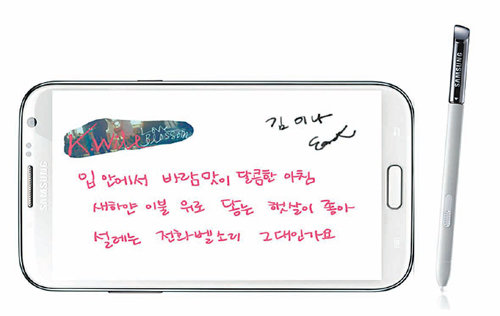 K.will
BLOSSOM
김이나
SAMSUNG
SAMSUNG
입 안에서 바람맛이 달콤한 아침
새하얀 이불 위로 닿는 햇살이 좋아
설레는 전화벨소리 그대인가요